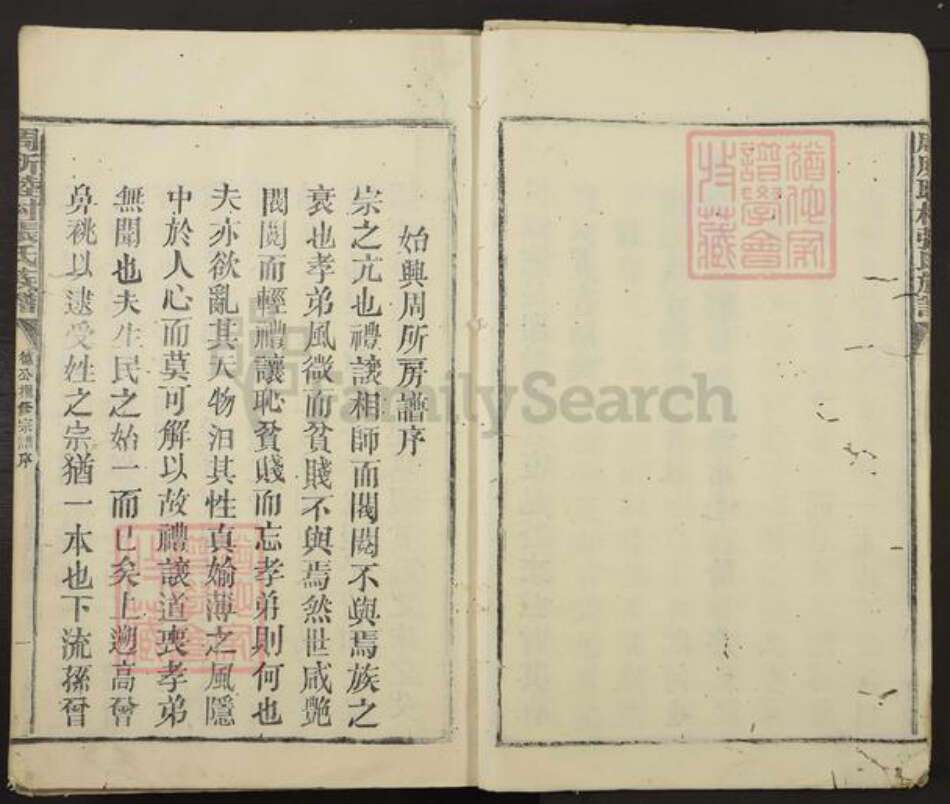 始興周所房譜序
崇之亢也禮讓相師而閥閱不與焉族之
衰也孝弟風微而貧賤不與焉然世咸艷
閥閱而輕禮讓恥貧賤而忘孝弟則何也
夫亦欲亂其天物汩其性真媮薄之風隱
中於人心而莫可解以故禮讓道喪孝弟
無聞也夫生民之始一而已矣上遡高曾
鼻祧以逮受姓之宗猶一本也下流孫曾
周所 村張氏族譜
德公 修宗譜序
猶他家
譜學會
收藏
FamilySearch